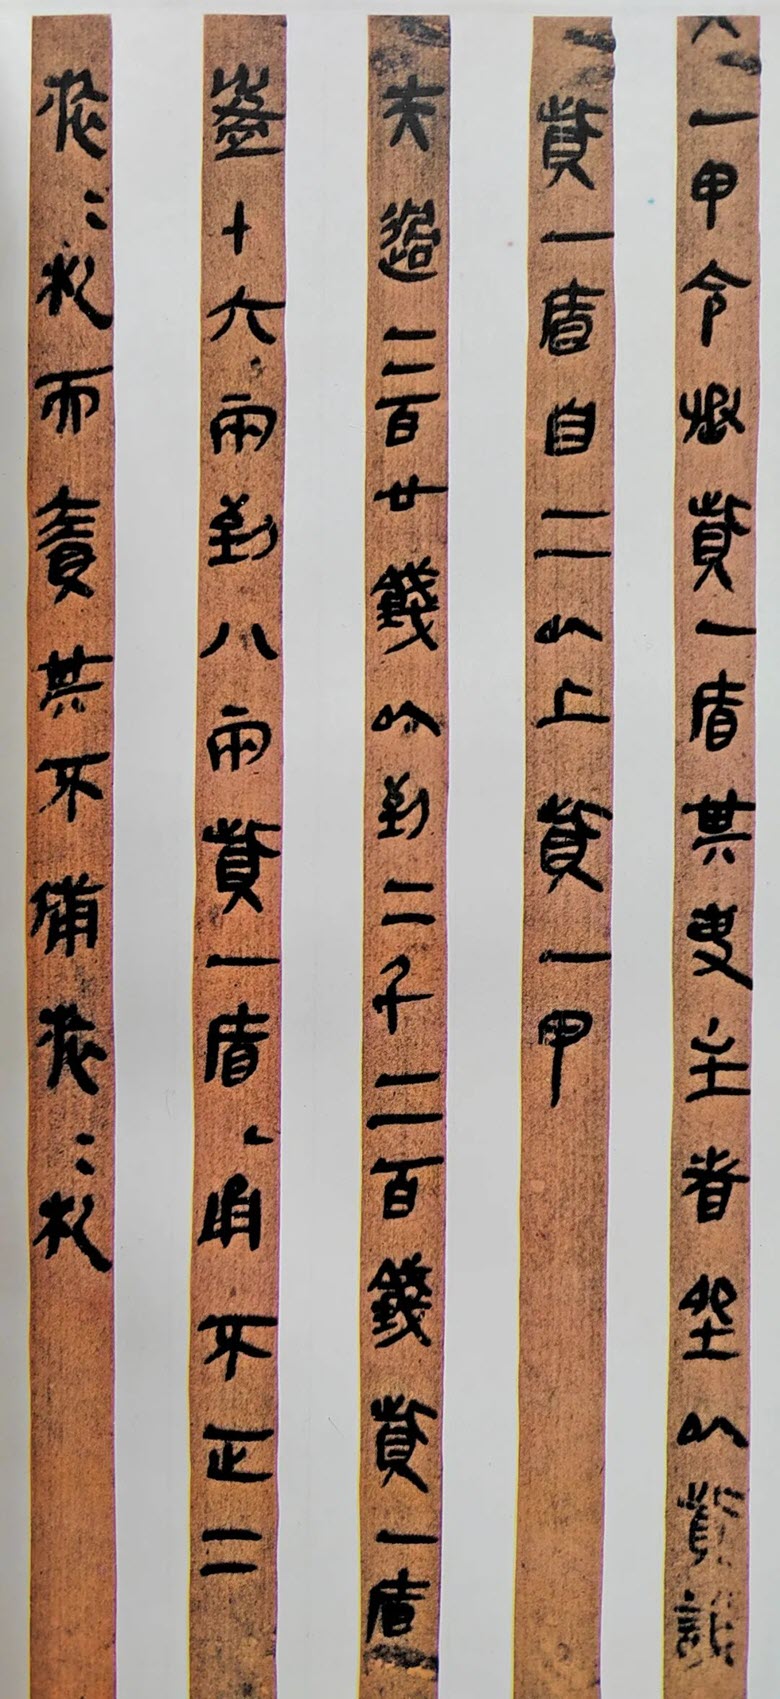 一甲令丞貲一盾其吏主者坐以貲誶
貲一盾自二以上貲一甲
夫過二百廿錢以到二千二百錢貲一盾
盈十六兩到八兩貲一盾甬不正二
旅=札而責其不備旅=札